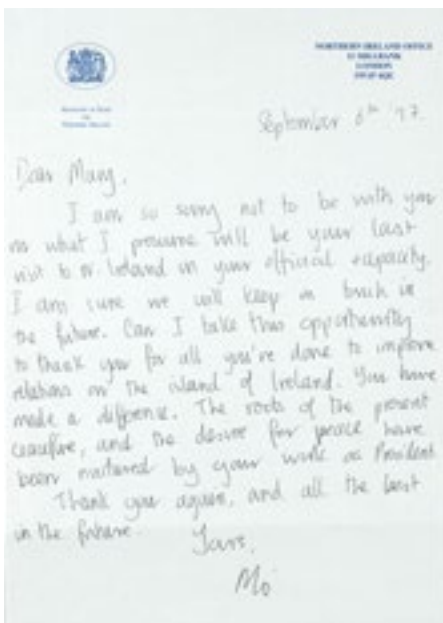 NORTHERN IRELAND OFFICE
11 MILLBANK
LONDON
SW1P 4QE
SECRETARY OF STATE
FOR
NORTHERN IRELAND
September 6th '97.
Dear Mary,
I am so sorry not to be with you
on what I presume will be your last
visit to N. Ireland in your official capacity.
I am sure we will keep in touch in
the future. Can I take this opportunity
to thank you for all you've done to improve
relations on the island of Ireland. You have
made a difference. The roots of the present
ceasefire, and the desire for peace have
been nurtured by your work as President
Thank you again, and all the best
in the future.
Yours,
Mo